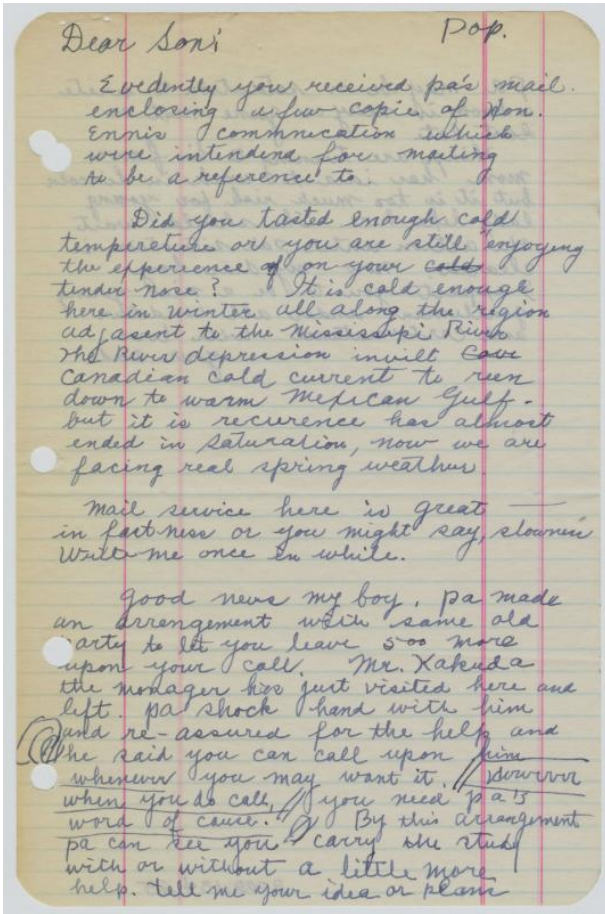 Pop.
Dear Son:
Evedently you received pa's mail.
enclosing a few copie of Hon.
Ennis commnication which
were intendend for maiting
to be a reference to.
Did you tasted enough cold
tempereture or you are still "enjoying
the experience of on your cold
tender nose? It is cold enough
here in winter all along the region
adjasent to the Mississipi River
The River depression invilt
Canadian cold current to run
down to warm Mexican Gulf.
but it is recurence has almost
ended in saturation, now we are
facing real spring weather.
Mail service here is great —
in fastness or you might say, slownein
Write me once en while.
Good news my boy. Pa made
an arrangement with same old
party to let you leave 500 more
upon your call. Mr. Kakuda
the manager has just visited here and
left. pa shock hand with him
and re-assured for the help and
he said you can call upon him
whenever you may want it. However
when you do call, you need pa's
word of cause. By this arrangement
pa can see you carry the study
with or without a little more
help. tell me your idea or plan